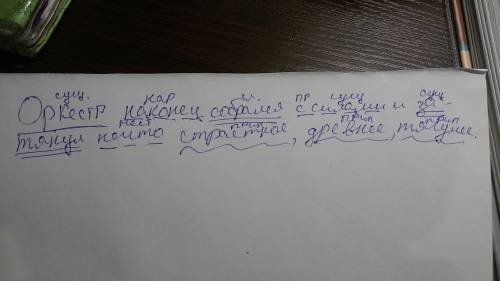 сущ. нар гл. пр сущ сущ
Оркестр наконец собрался с силами и за-
мест прил прил прил
тянул что-то страстное, древнее, тягучее.